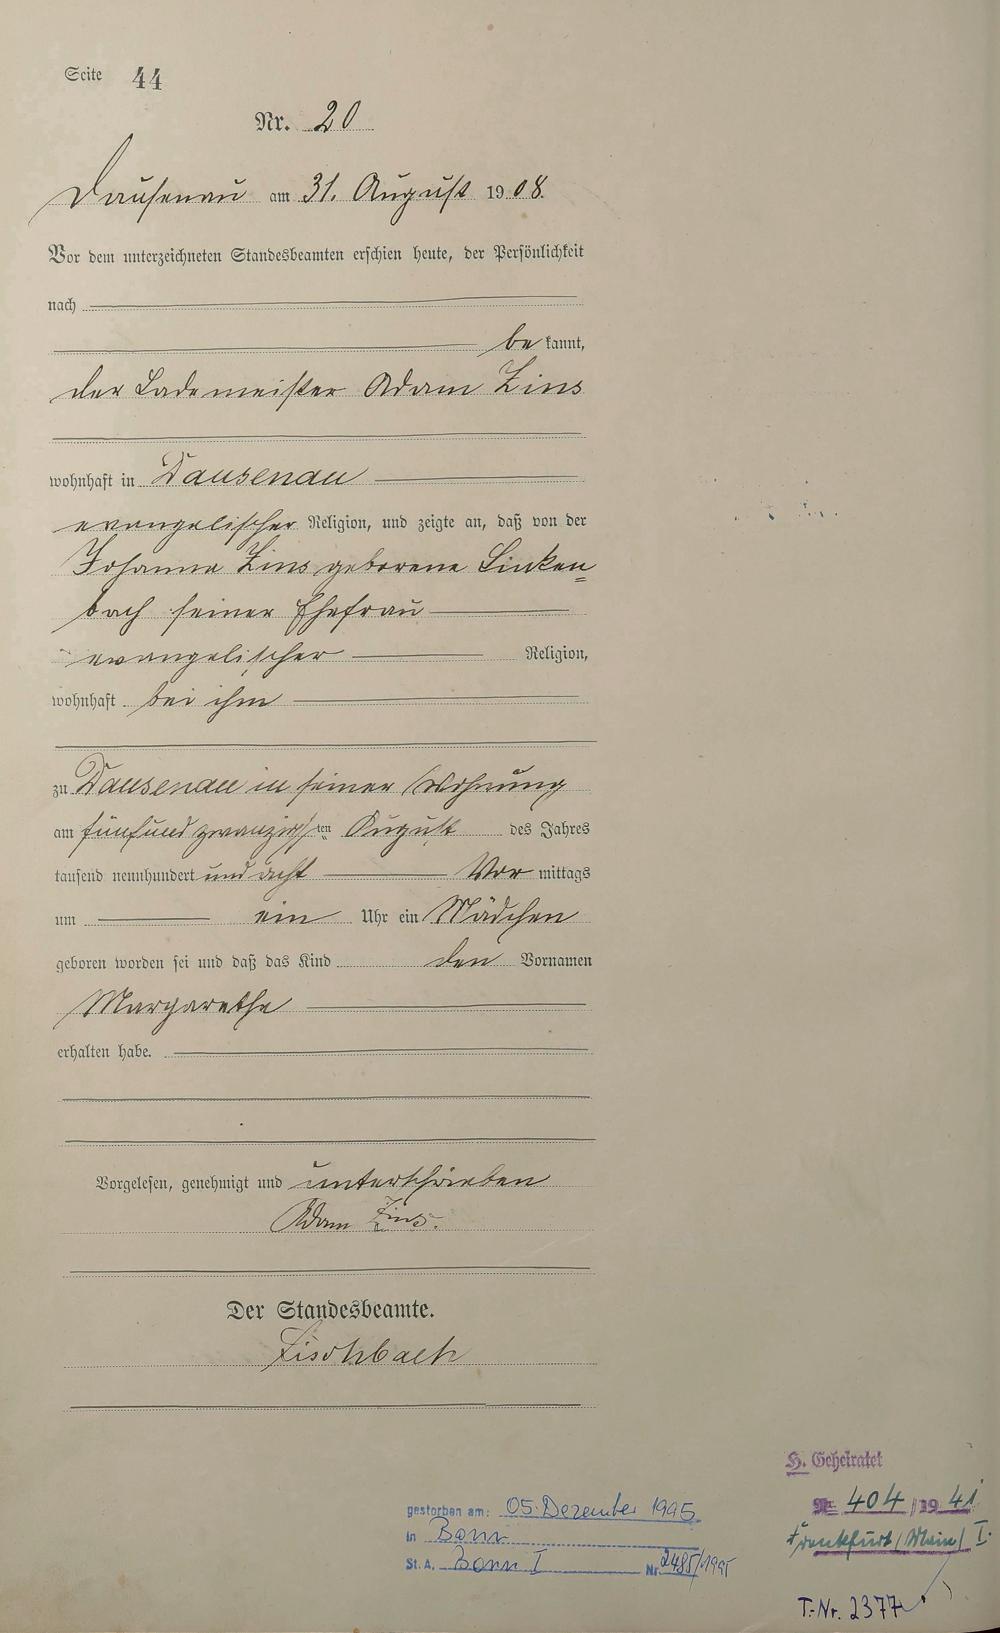 Seite 44
Nr. 20
Dausenau am 31. August 1908.
Vor dem unterzeichneten Standesbeamten erschien heute, der Persönlichkeit
nach
bekannt,
der Lademeister Adam Zins
wohnhaft in Dausenau
evangelischer Religion, und zeigte an, daß von der
Johanna Zins geborene Linken=
bach seiner Ehefrau
evangelischer Religion,
wohnhaft bei ihm
zu Dausenau in seiner Wohnung
am fünfundzwanzigsten August des Jahres
tausend neunhundert und acht Vormittags
um ein Uhr ein Mädchen
geboren worden sei und daß das Kind den Vornamen
Margarethe
erhalten habe.
Vorgelesen, genehmigt und unterschrieben
Adam Zins.
Der Standesbeamte.
Fischbach
H. Geheiratet
Nr. 404/1941
Frankfurt/Main/ I.
gestorben am: 05. Dezember 1995
in Bonn
St. A. Bonn I Nr. 2485/1995
T.-Nr. 2377